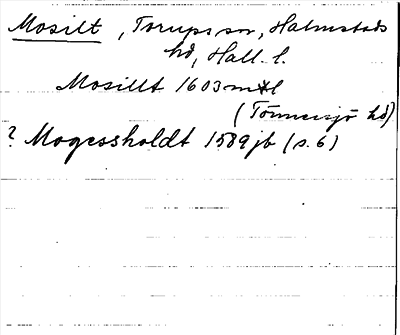 Mosilt, Torups sn, Halmstads
hd, Hall. l.
Mosillt 1603 mtl
(Tönnersjö hd)
? Mogessholdt 1589 jb (s. 6)